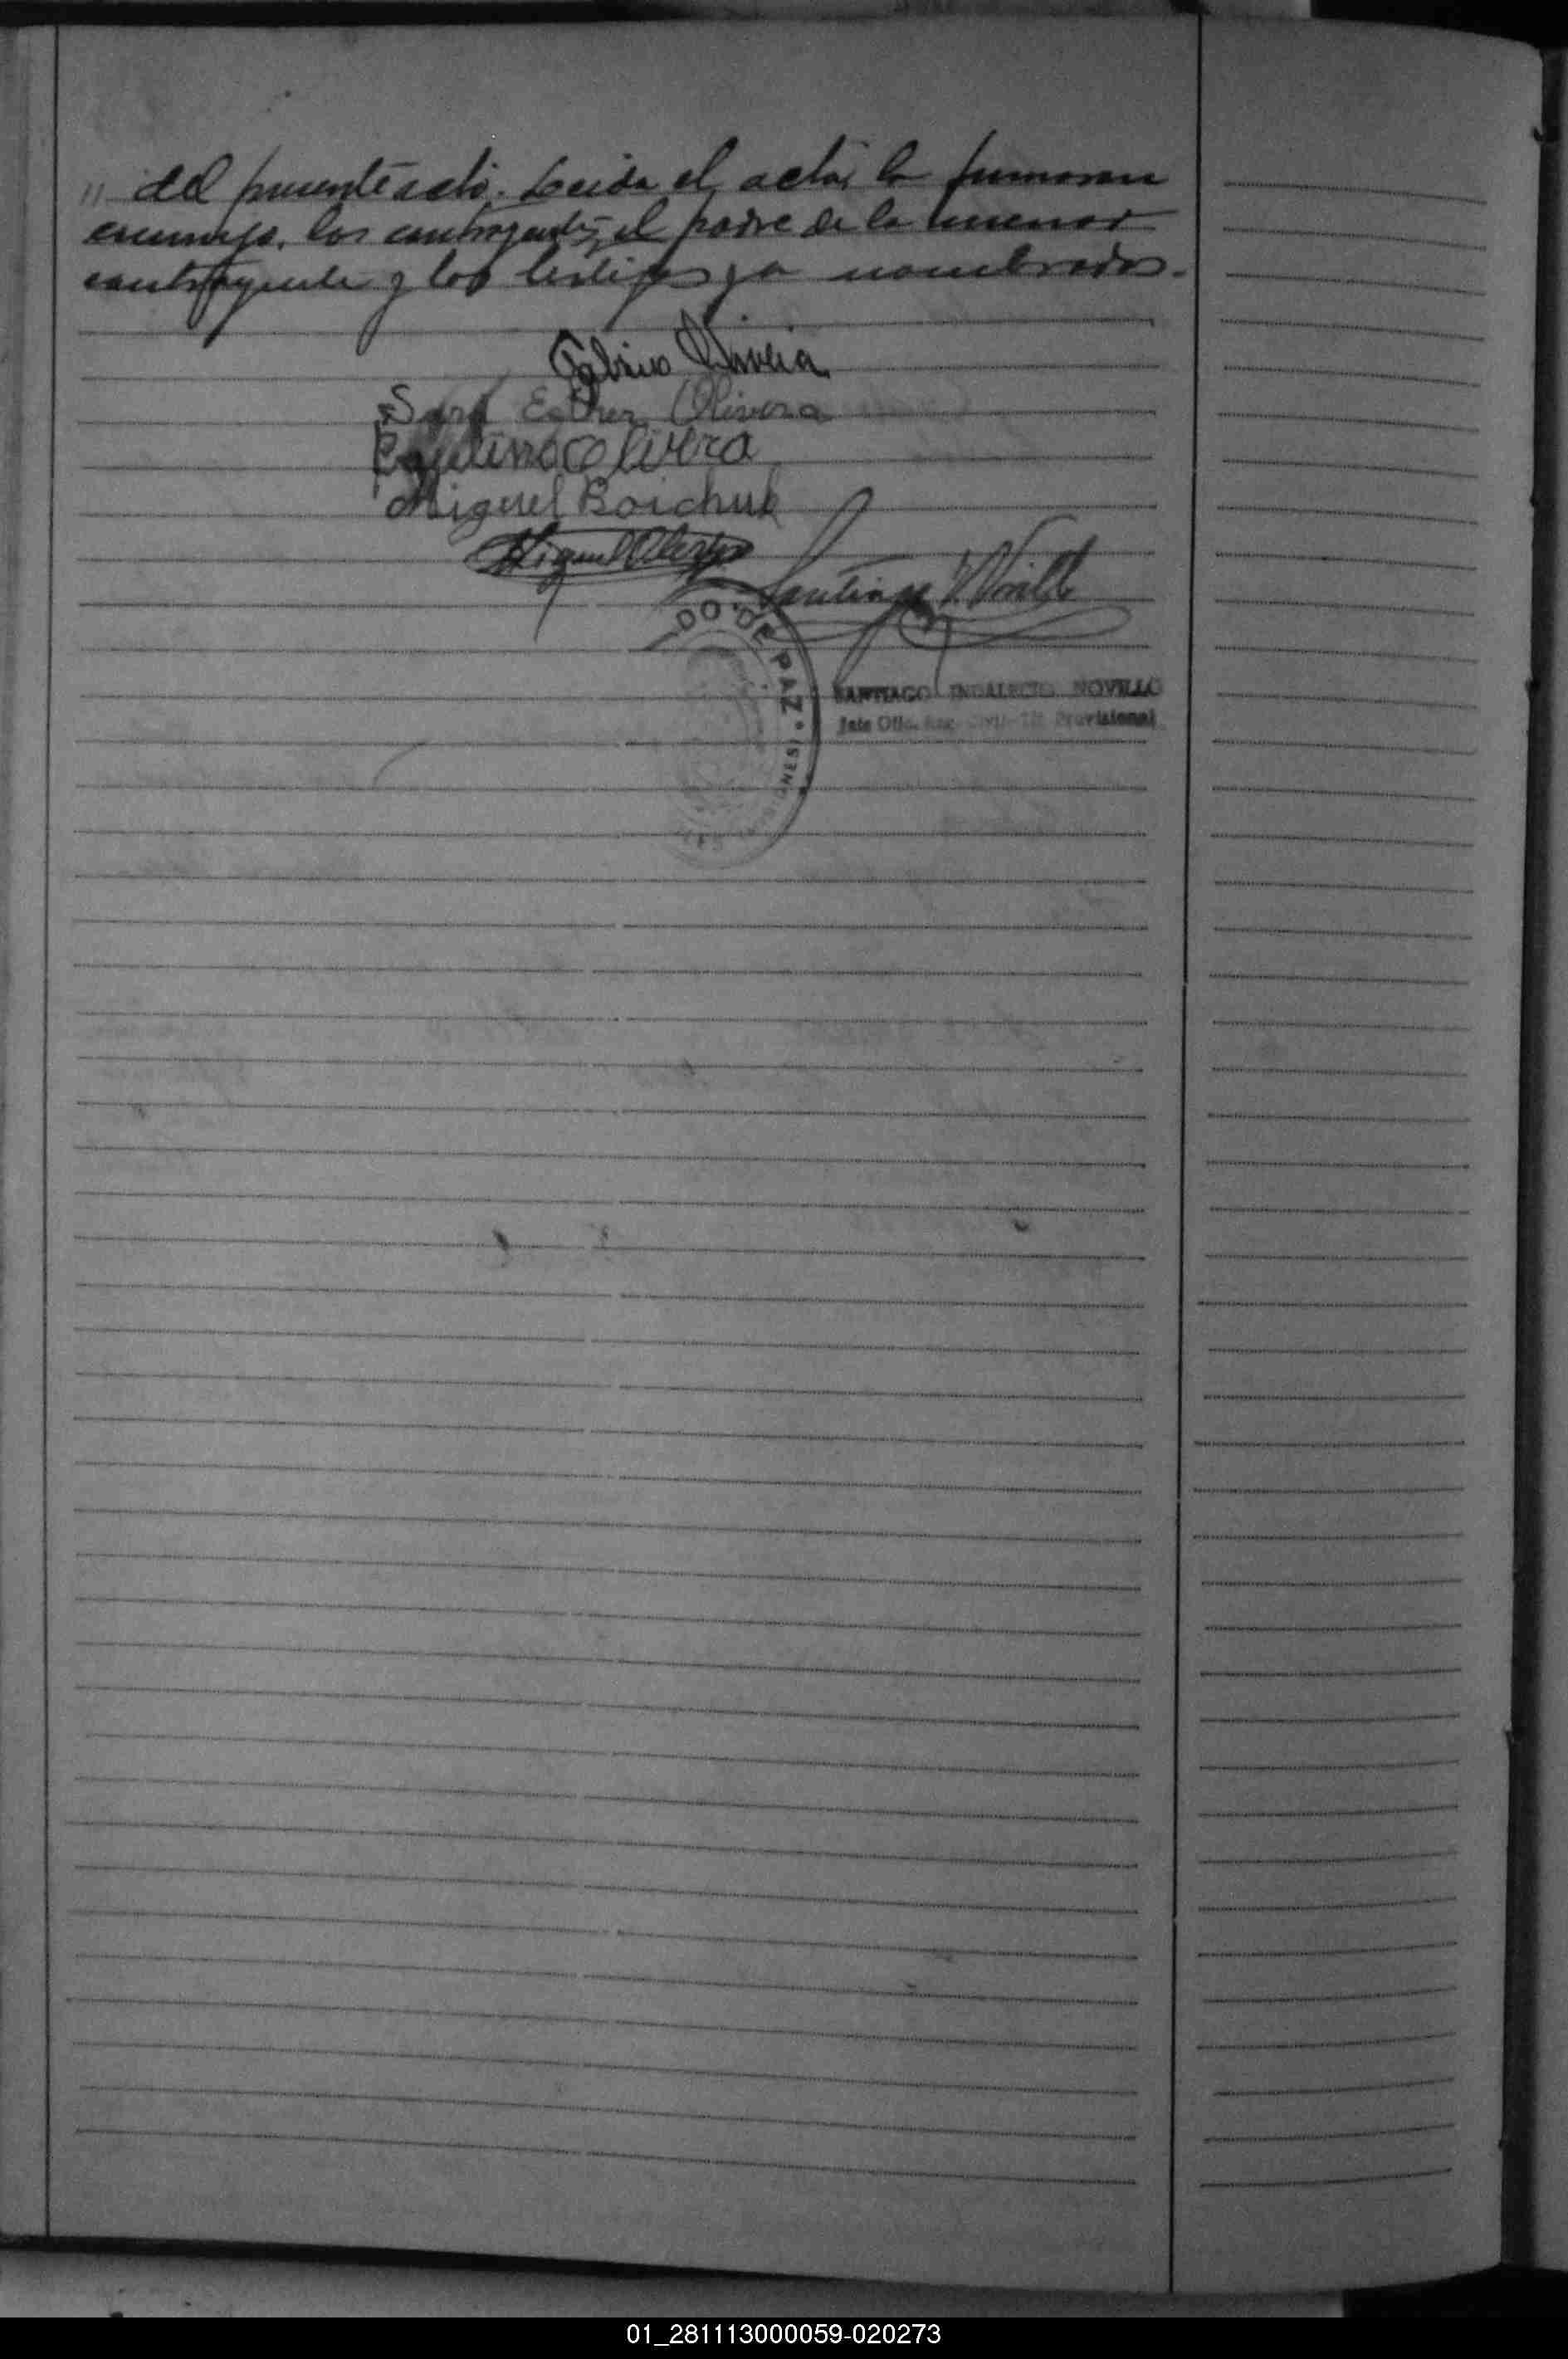 " del presente acto. Leida el acta, la firmaron
conmigo, los contrayentes, el padre de la menor
contrayente y los testigos ya nombrados.-
Olivera
Sara Esther Olivera
Olivera
Miguel Boichuk
Miguel
Santiago I. Novillo
DO DE PAZ • (MISIONES)
SANTIAGO INDALECIO NOVILLO
Jefe Ofic. Reg. Civil Provisional
01_281113000059-020273